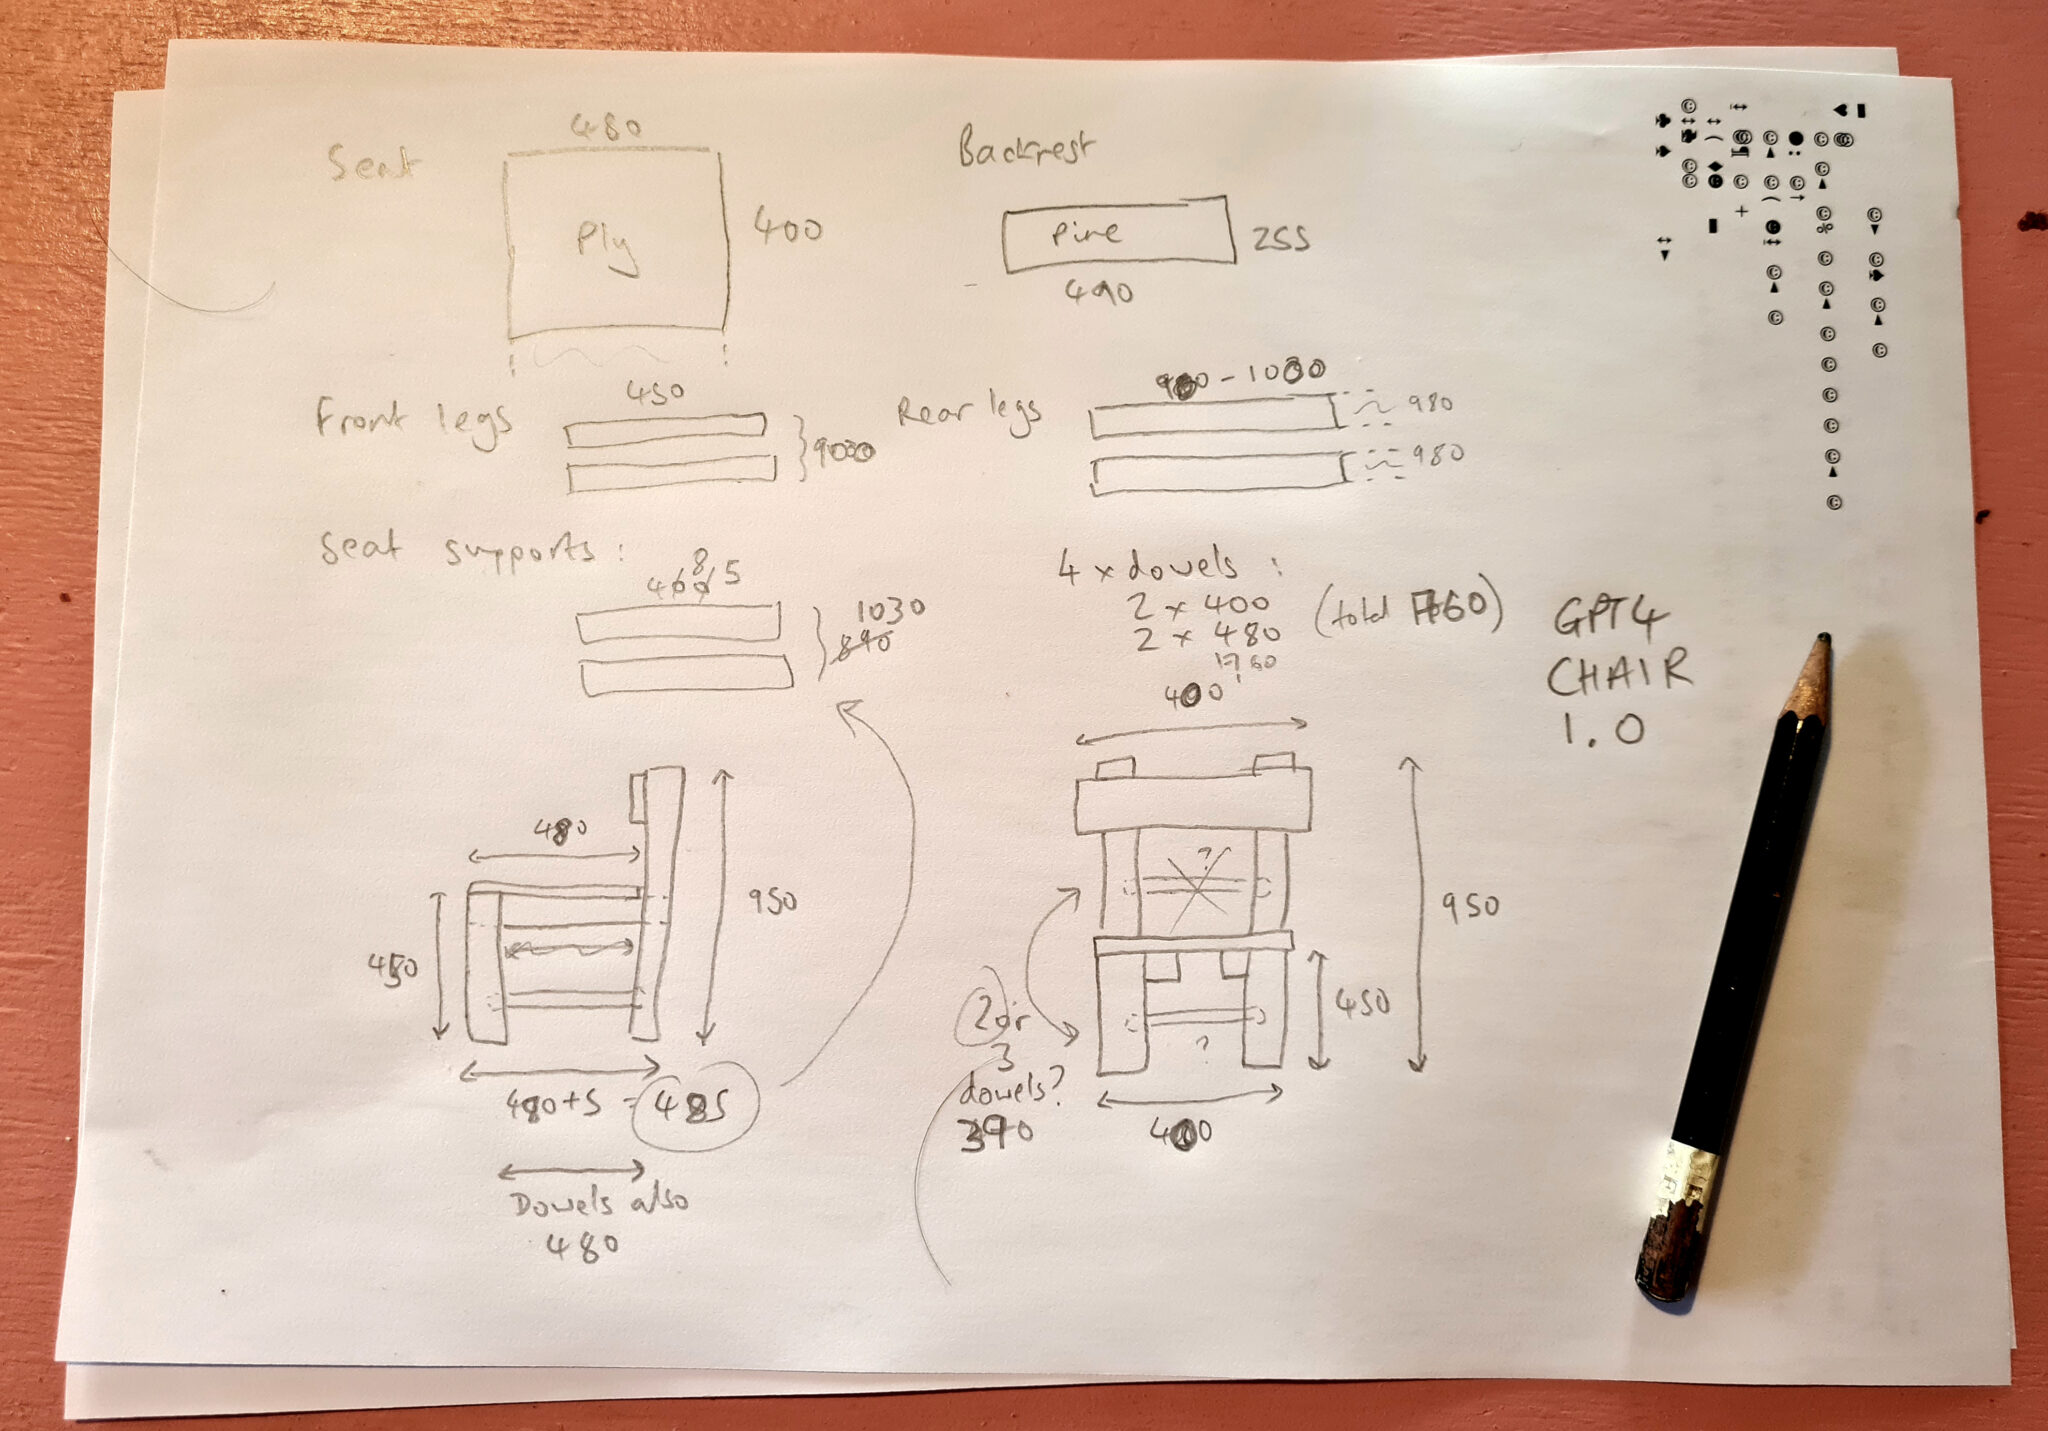 Seat
480
Ply
400
Backrest
Pine
255
Front legs
450
Rear legs
980
980
Seat supports:
5
1030
890
4 x dowels:
2 x 400
2 x 480
(total 1760)
1760
400
GPT4
CHAIR
1.0
480
450
950
480+5 = 485
Dowels also
480
?
950
450
?
2 or
3
dowels?
390
400